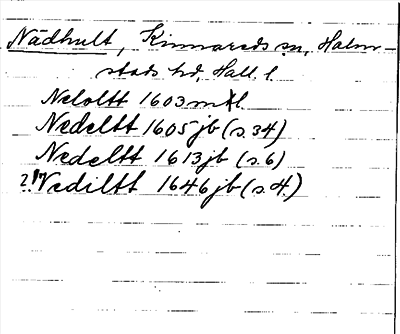 Nadhult, Kinnareds sn, Halm-
stads hd, Hall. l.
Neloltt 1603 mtl
Nedeltt 1605 jb (s. 34)
Nedeltt 1613 jb (s. 6)
?! Vediltt 1646 jb (s. 4.)